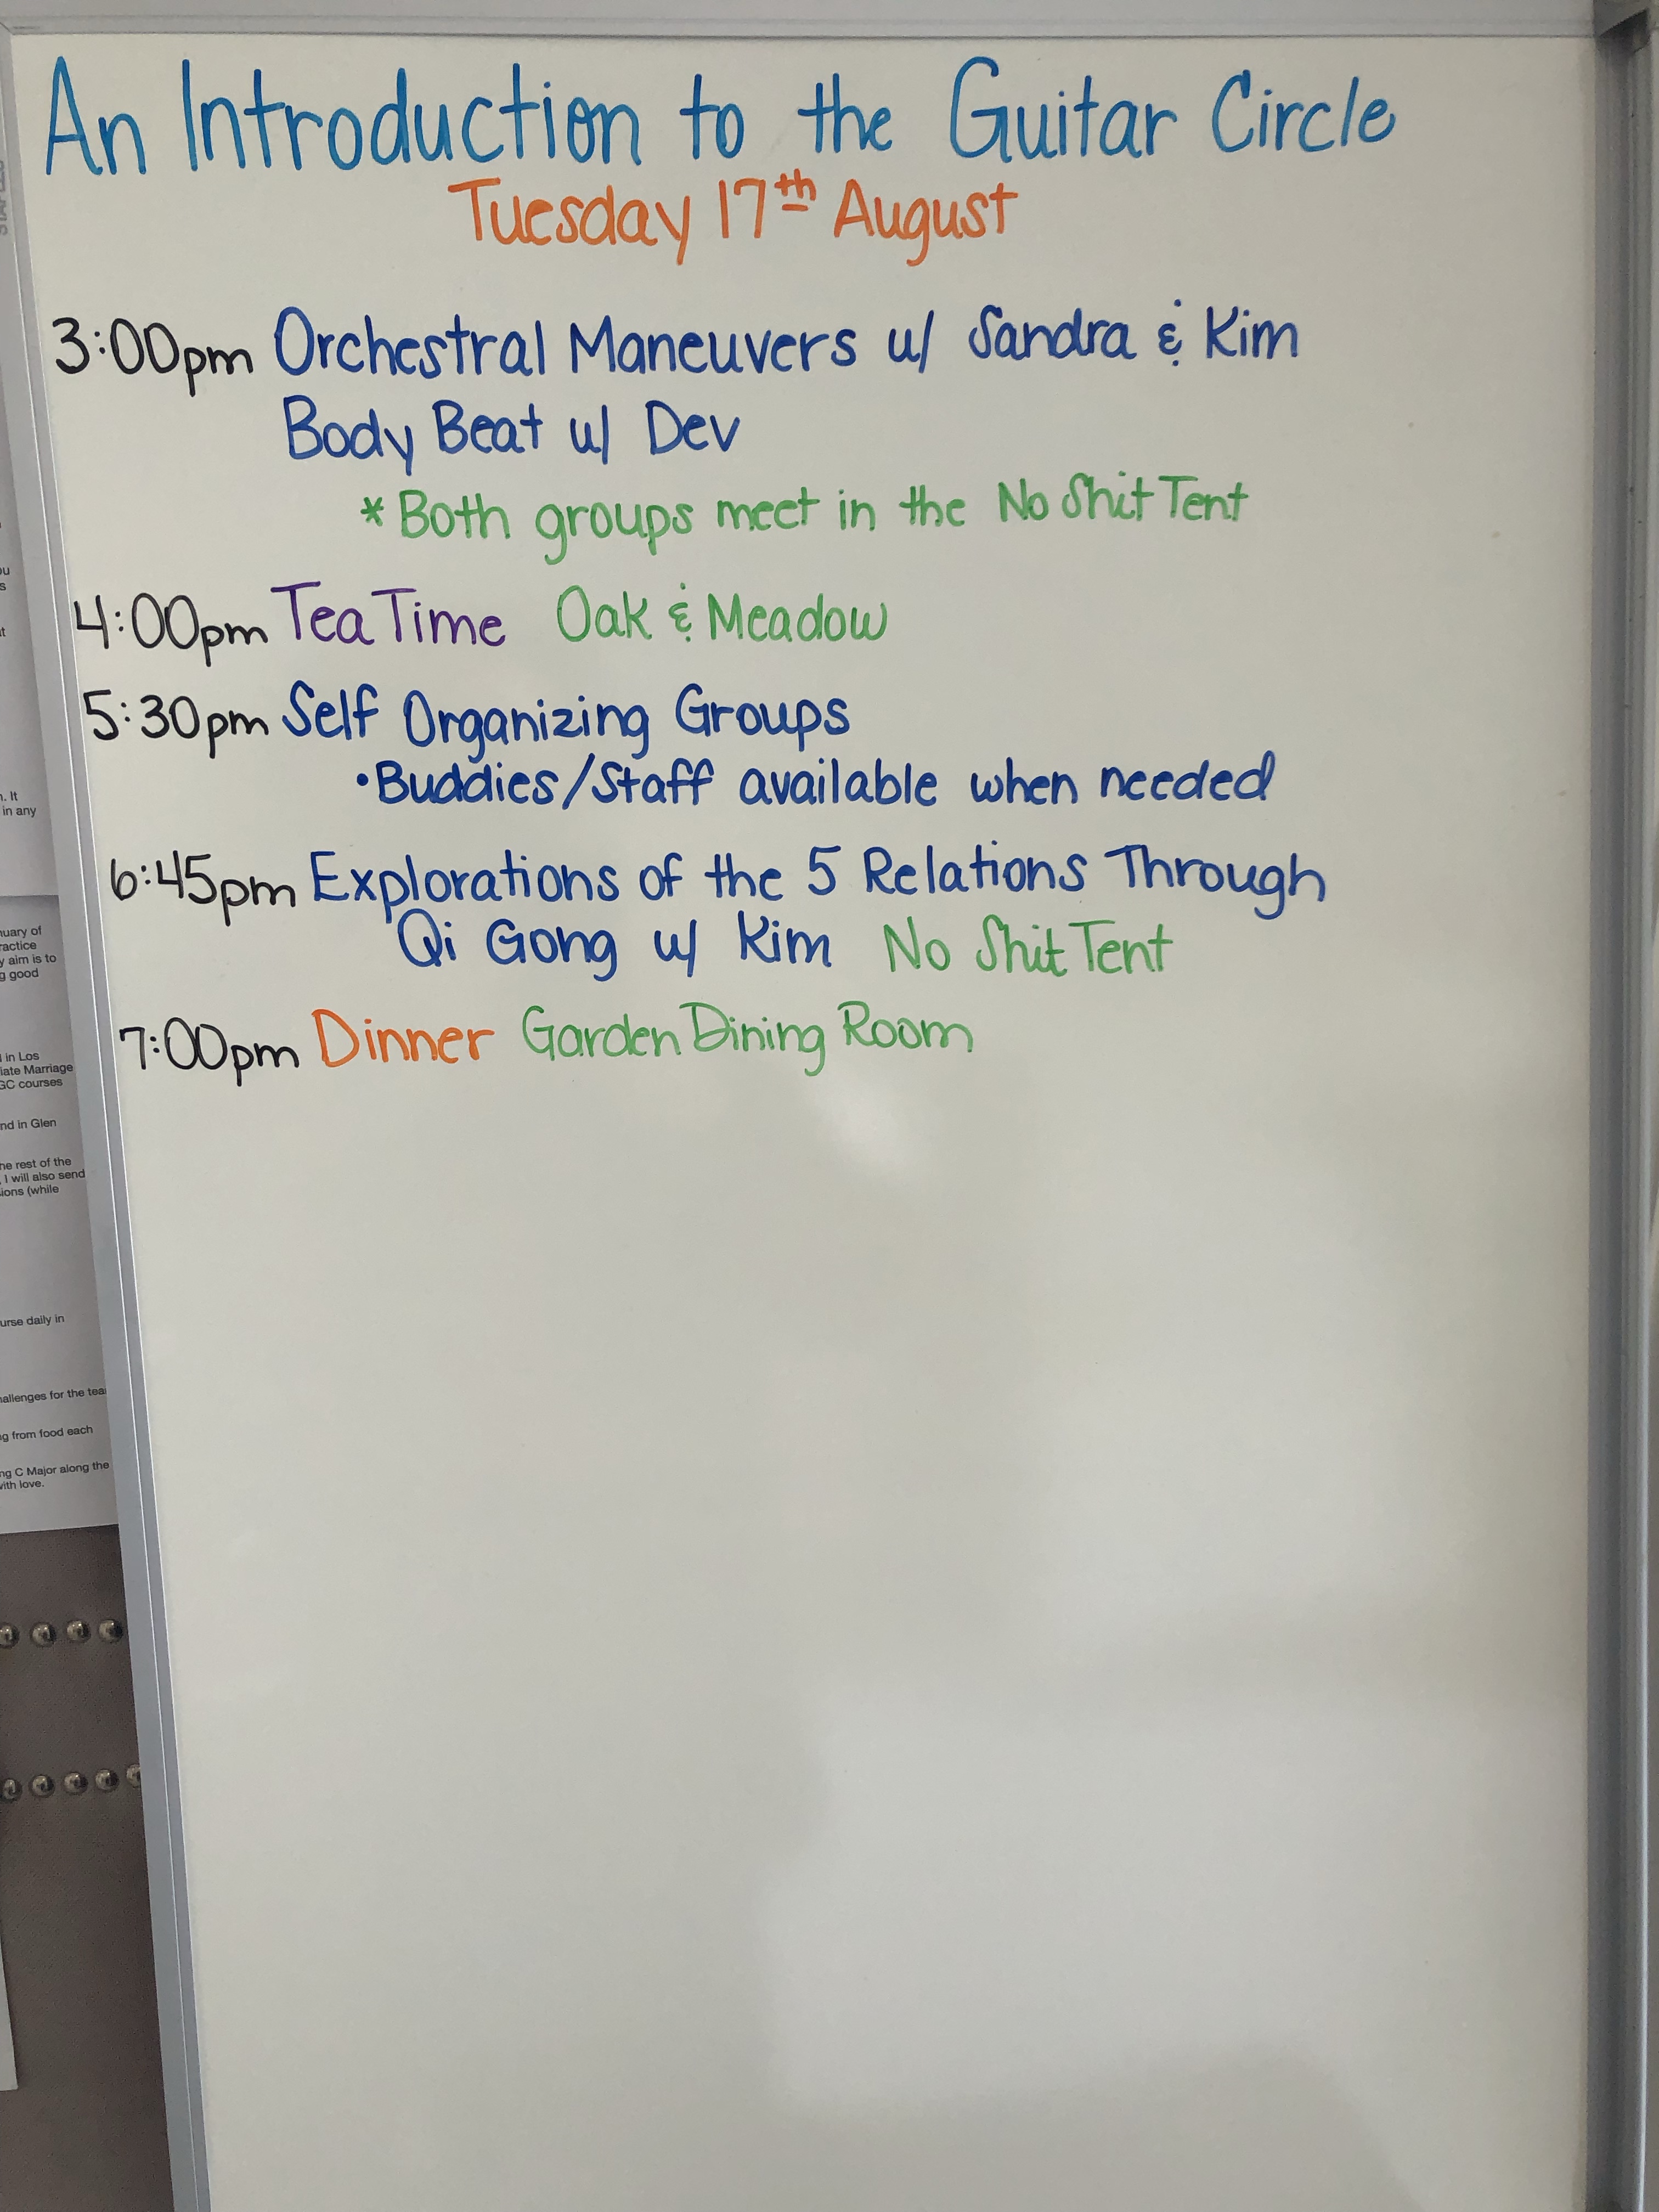 An Introduction to the Guitar Circle
Tuesday 17th August
3:00pm Orchestral Maneuvers w/ Sandra & Kim
Body Beat w/ Dev
* Both groups meet in the No Shit Tent
4:00pm Tea Time Oak & Meadow
5:30pm Self Organizing Groups
• Buddies/Staff available when needed
6:45pm Explorations of the 5 Relations Through
Qi Gong w/ Kim No Shit Tent
7:00pm Dinner Garden Dining Room
It
in any
practice
aim is to
good
in Los
Marriage
courses
in Glen
rest of the
I will also send
(while
daily in
for the
from food each
C Major along the
with love.